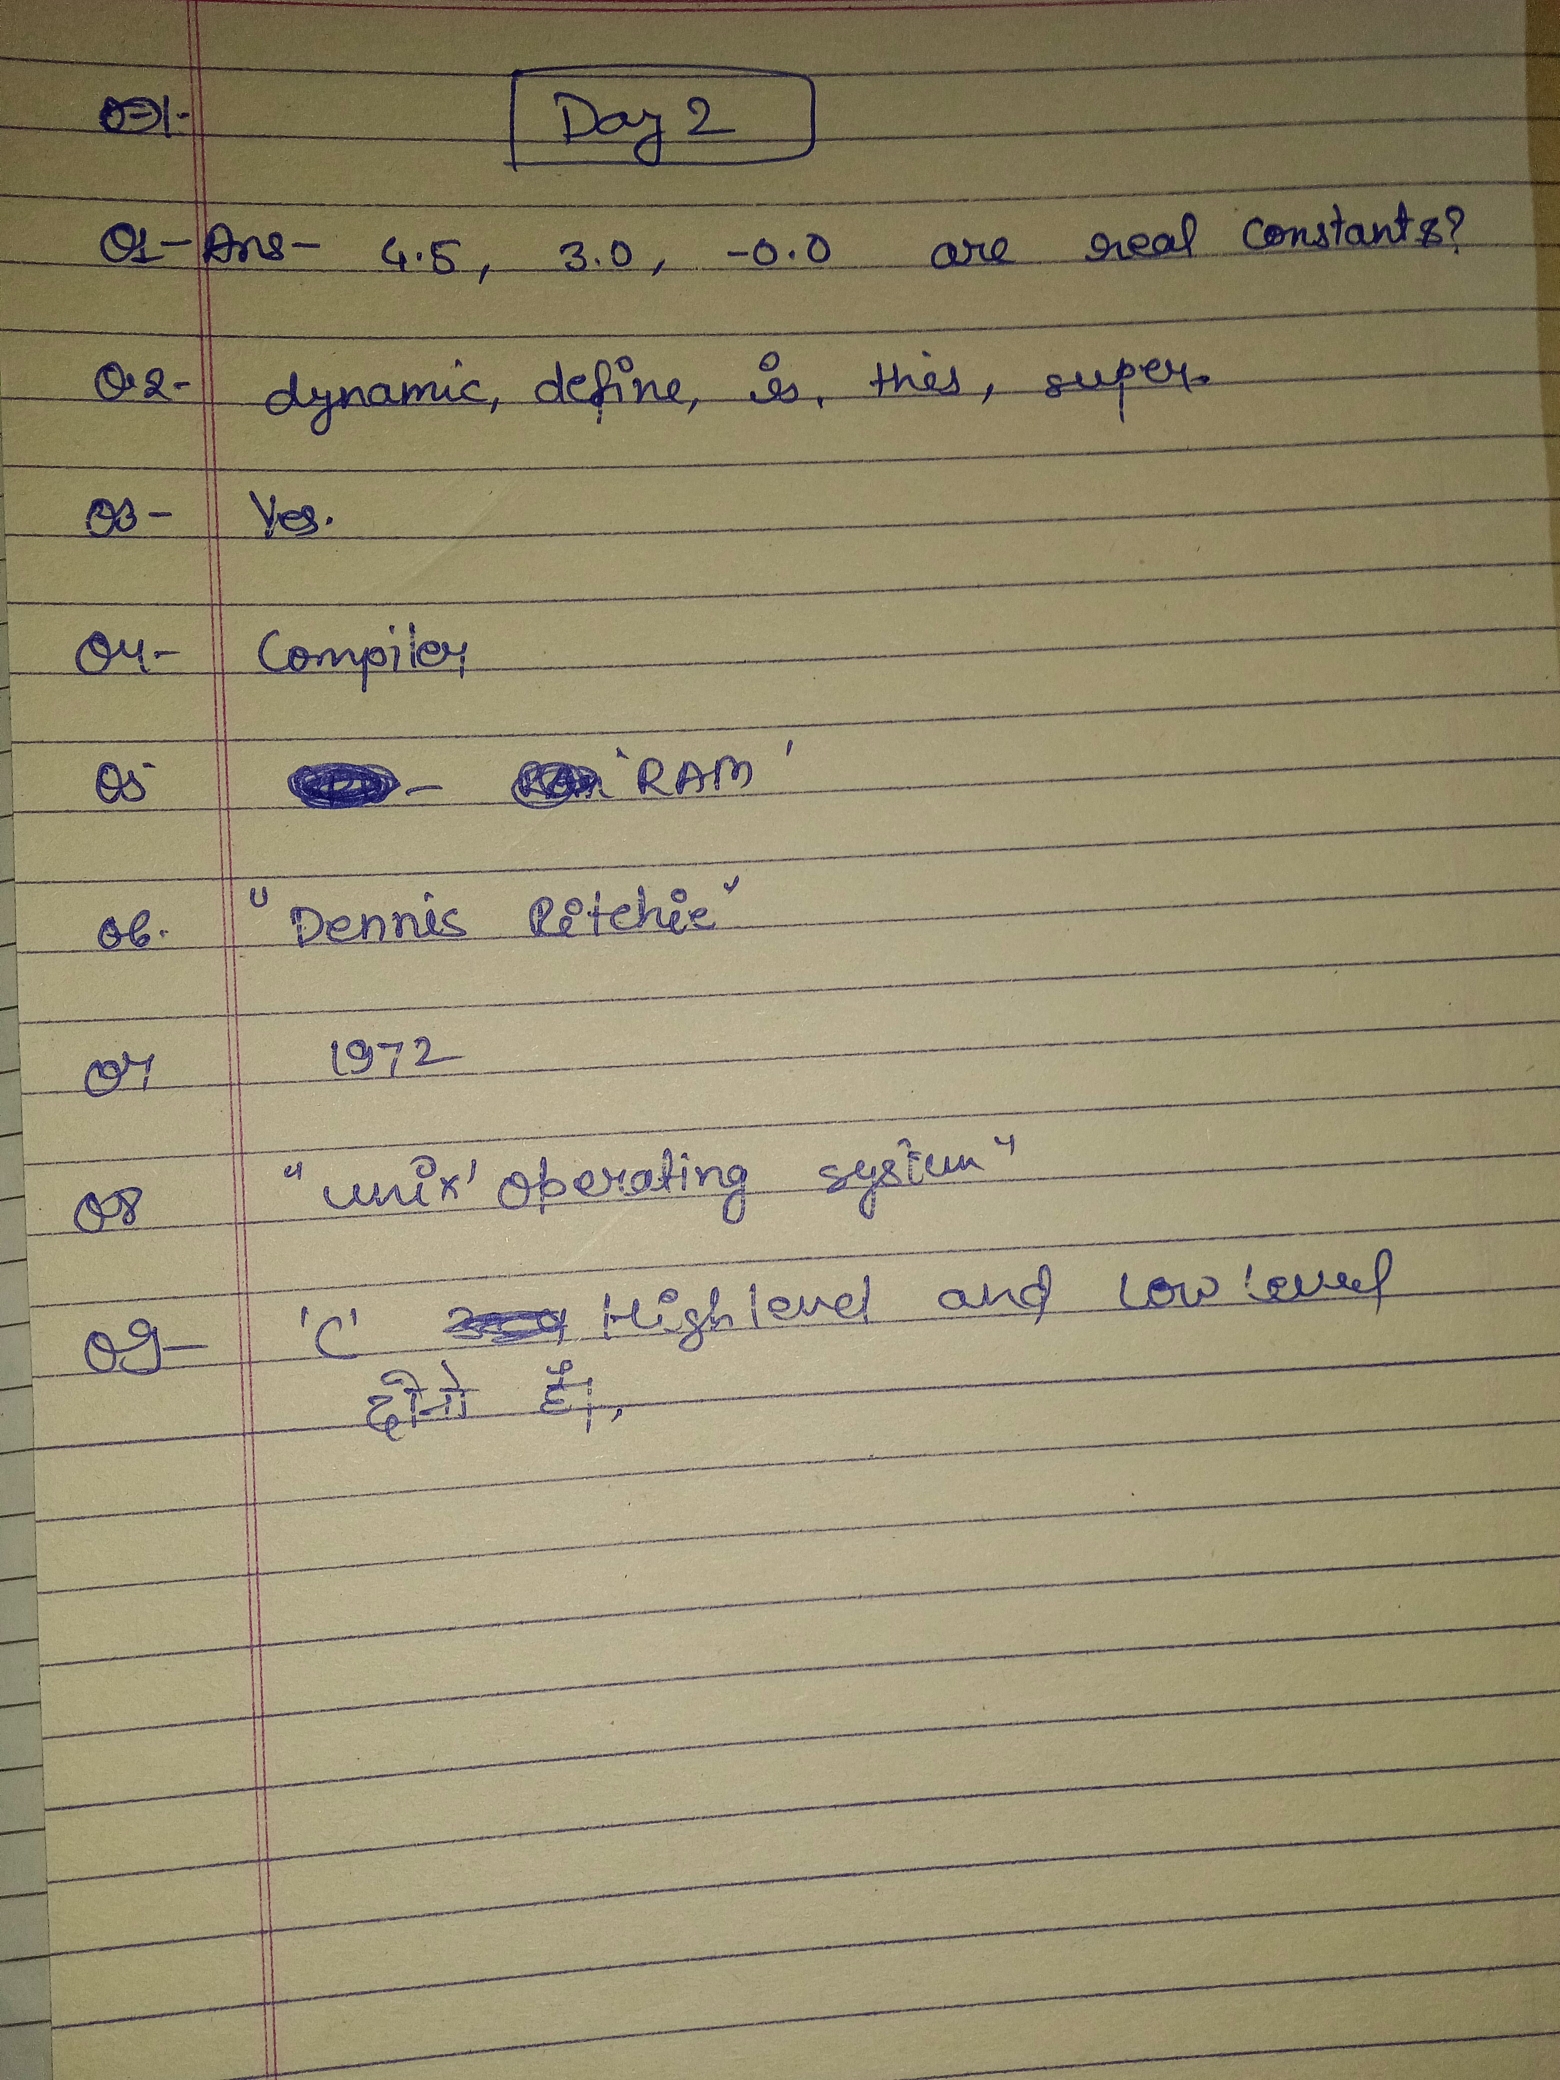 Day 2
Q1- Ans- 4.5, 3.0, -0.0 are real constants?
Q2- dynamic, define, is, this, super.
Q3- Yes.
Q4- Compiler
Q5 - 'RAM'
Q6. "Dennis Ritchie"
Q7 1972
Q8 "unix' operating system"
Q9- 'C' High level and low level
दोनो हैं।,